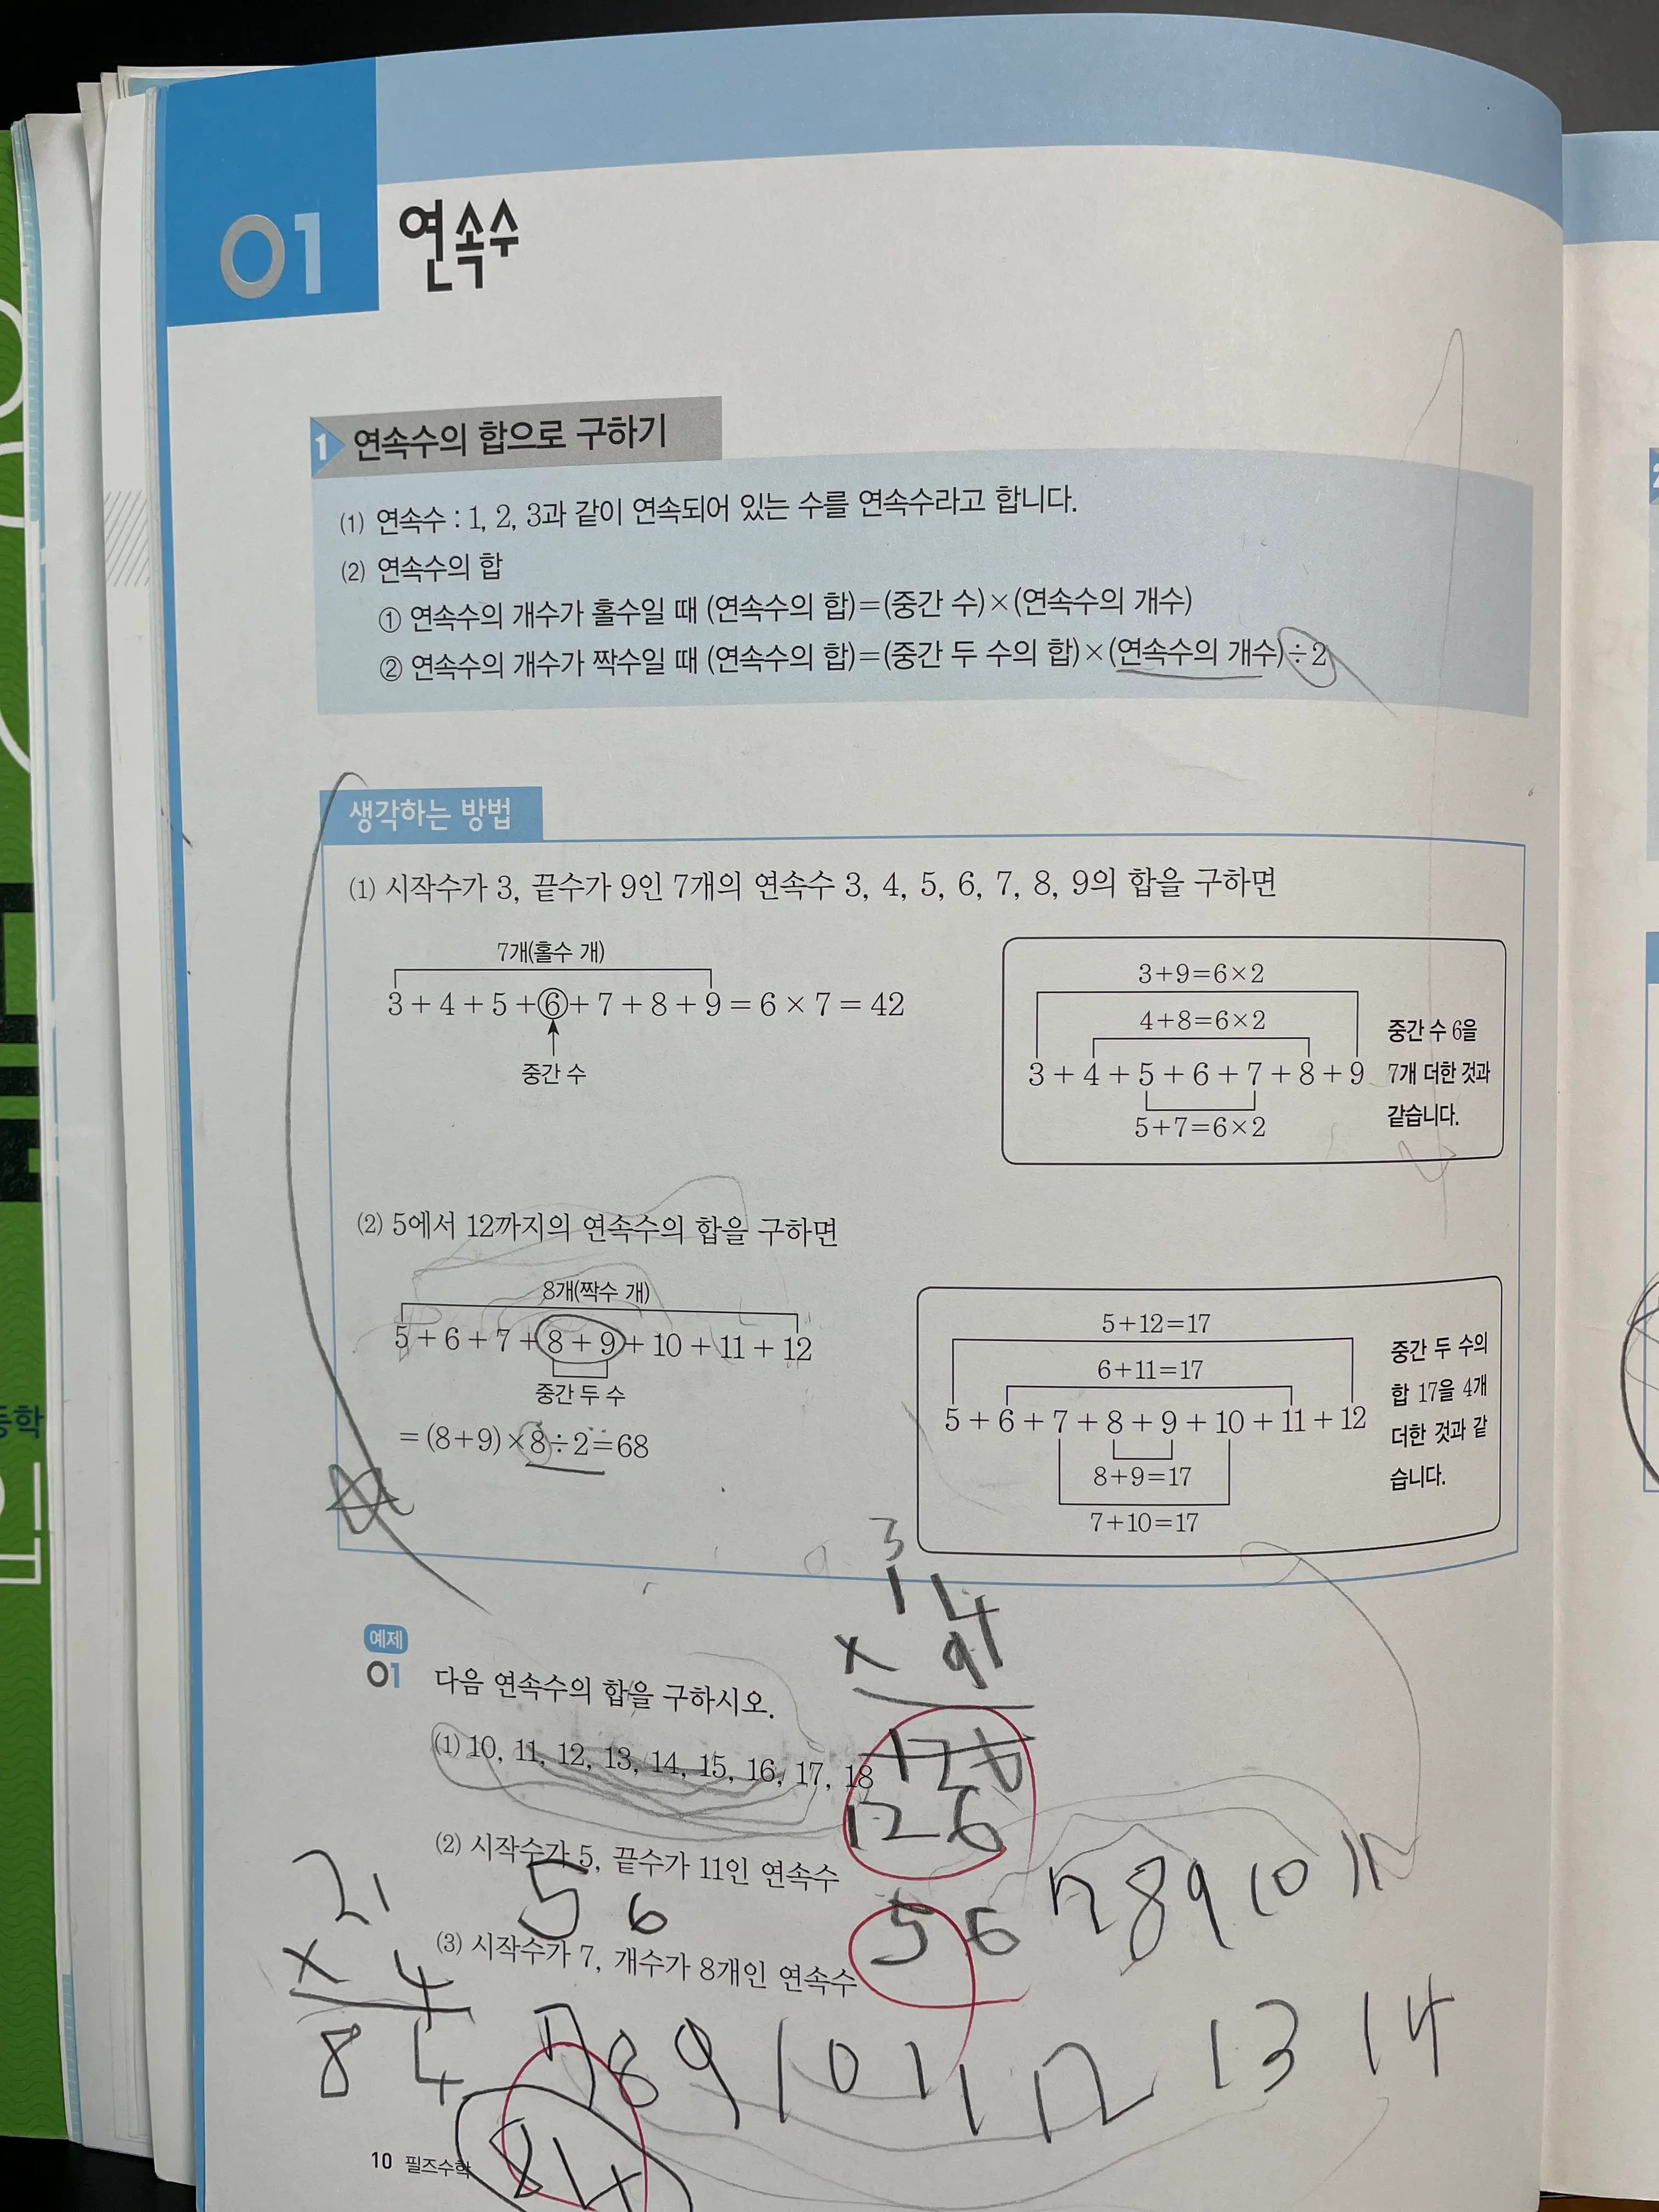 01 연속수
1 연속수의 합으로 구하기
(1) 연속수 : 1, 2, 3과 같이 연속되어 있는 수를 연속수라고 합니다.
(2) 연속수의 합
① 연속수의 개수가 홀수일 때 (연속수의 합)=(중간 수)×(연속수의 개수)
② 연속수의 개수가 짝수일 때 (연속수의 합)=(중간 두 수의 합)×(연속수의 개수)÷2
생각하는 방법
(1) 시작수가 3, 끝수가 9인 7개의 연속수 3, 4, 5, 6, 7, 8, 9의 합을 구하면
7개(홀수 개)
3+4+5+6+7+8+9=6×7=42
중간 수
3+9=6×2
4+8=6×2
3+4+5+6+7+8+9
5+7=6×2
중간 수 6을
7개 더한 것과
같습니다.
(2) 5에서 12까지의 연속수의 합을 구하면
8개(짝수 개)
5+6+7+8+9+10+11+12
중간 두 수
=(8+9)×8÷2=68
5+12=17
6+11=17
5+6+7+8+9+10+11+12
8+9=17
7+10=17
중간 두 수의
합 17을 4개
더한 것과 같
습니다.
3
14
× 9
126
예제
01 다음 연속수의 합을 구하시오.
(1) 10, 11, 12, 13, 14, 15, 16, 17, 18
126
(2) 시작수가 5, 끝수가 11인 연속수
5 6
5 6 7 8 9 10 11
(3) 시작수가 7, 개수가 8개인 연속수
21
× 4
84
7 8 9 10 11 12 13 14
84
10 필즈수학
등학